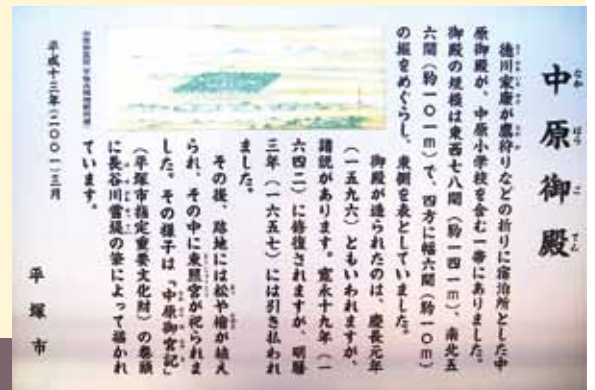 中原御殿
なかはらごてん
徳川家康が鷹狩りなどの折りに宿泊所とした中
原御殿が、中原小学校を含む一帯にありました。
御殿の規模は東西七八間（約一四一m）、南北五
六間（約一〇一m）で、四方に幅六間（約一〇m）
の堀をめぐらし、東側を表としていました。
御殿が造られたのは、慶長元年
（一五九六）ともいわれますが、
諸説があります。寛永十九年（一
六四二）に修復されますが、明暦
三年（一六五七）には引き払われ
ました。
その後、跡地には松や檜が植え
られ、その中に東照宮が祀られま
した。その様子は「中原御宮記」
（平塚市指定重要文化財）の巻頭
に長谷川雪堤の筆によって描かれ
ています。
平成十三年（二〇〇一）三月
平塚市